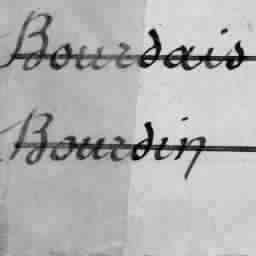 Bourdais
Bourdin